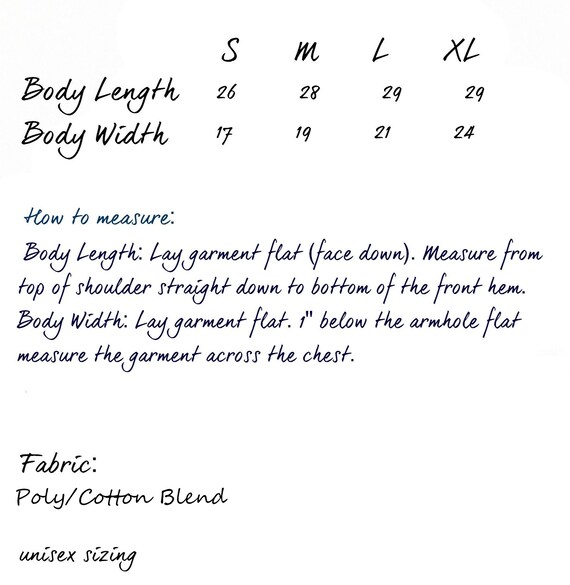 S M L XL
Body Length 26 28 29 29
Body Width 17 19 21 24
How to measure:
Body Length: Lay garment flat (face down). Measure from
top of shoulder straight down to bottom of the front hem.
Body Width: Lay garment flat. 1" below the armhole flat
measure the garment across the chest.
Fabric:
Poly/Cotton Blend
unisex sizing